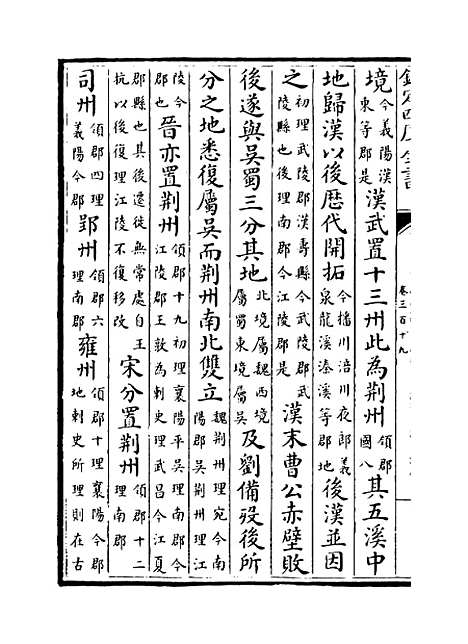 欽定四庫全書
卷三百十九
境今義陽漢東等郡是漢武置十三州此為荊州領郡國八其五溪中
地歸漢以後歴代開拓今播川涪川夜郎義泉龍溪溱溪等郡地後漢並因
之初理武陵郡漢壽縣今武陵郡武陵縣也後理南郡今江陵郡是漢末曹公赤壁敗
後遂與吳蜀三分其地北境屬魏西境屬蜀東境屬吳及劉備殁後所
分之地悉復屬吳而荊州南北雙立魏荊州理宛今南陽郡吳荊州理江
陵今郡也晉亦置荊州領郡十九初理襄陽平吳理南郡今江陵郡王敦為刺史理武昌今江夏
郡縣也其後遷徙無常處自王抗以後復理江陵不復移改宋分置荊州領郡十二理南郡
司州領郡四理義陽今郡郢州領郡六理南郡雍州領郡十理襄陽今郡地刺史所理則在古